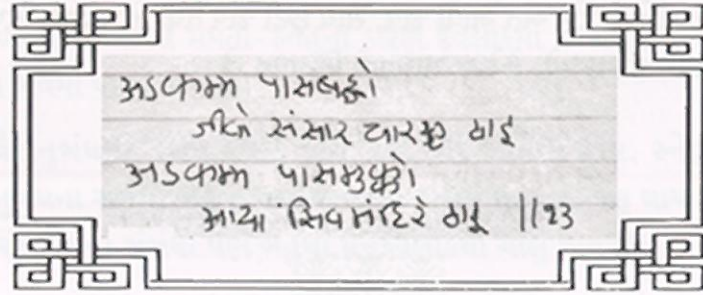 अडकम्म पासबद्धो
जीवो संसार चारए ठाइ
अडकम्म पासमुक्को
आया सिवमंदिरे ठाइ ||२३